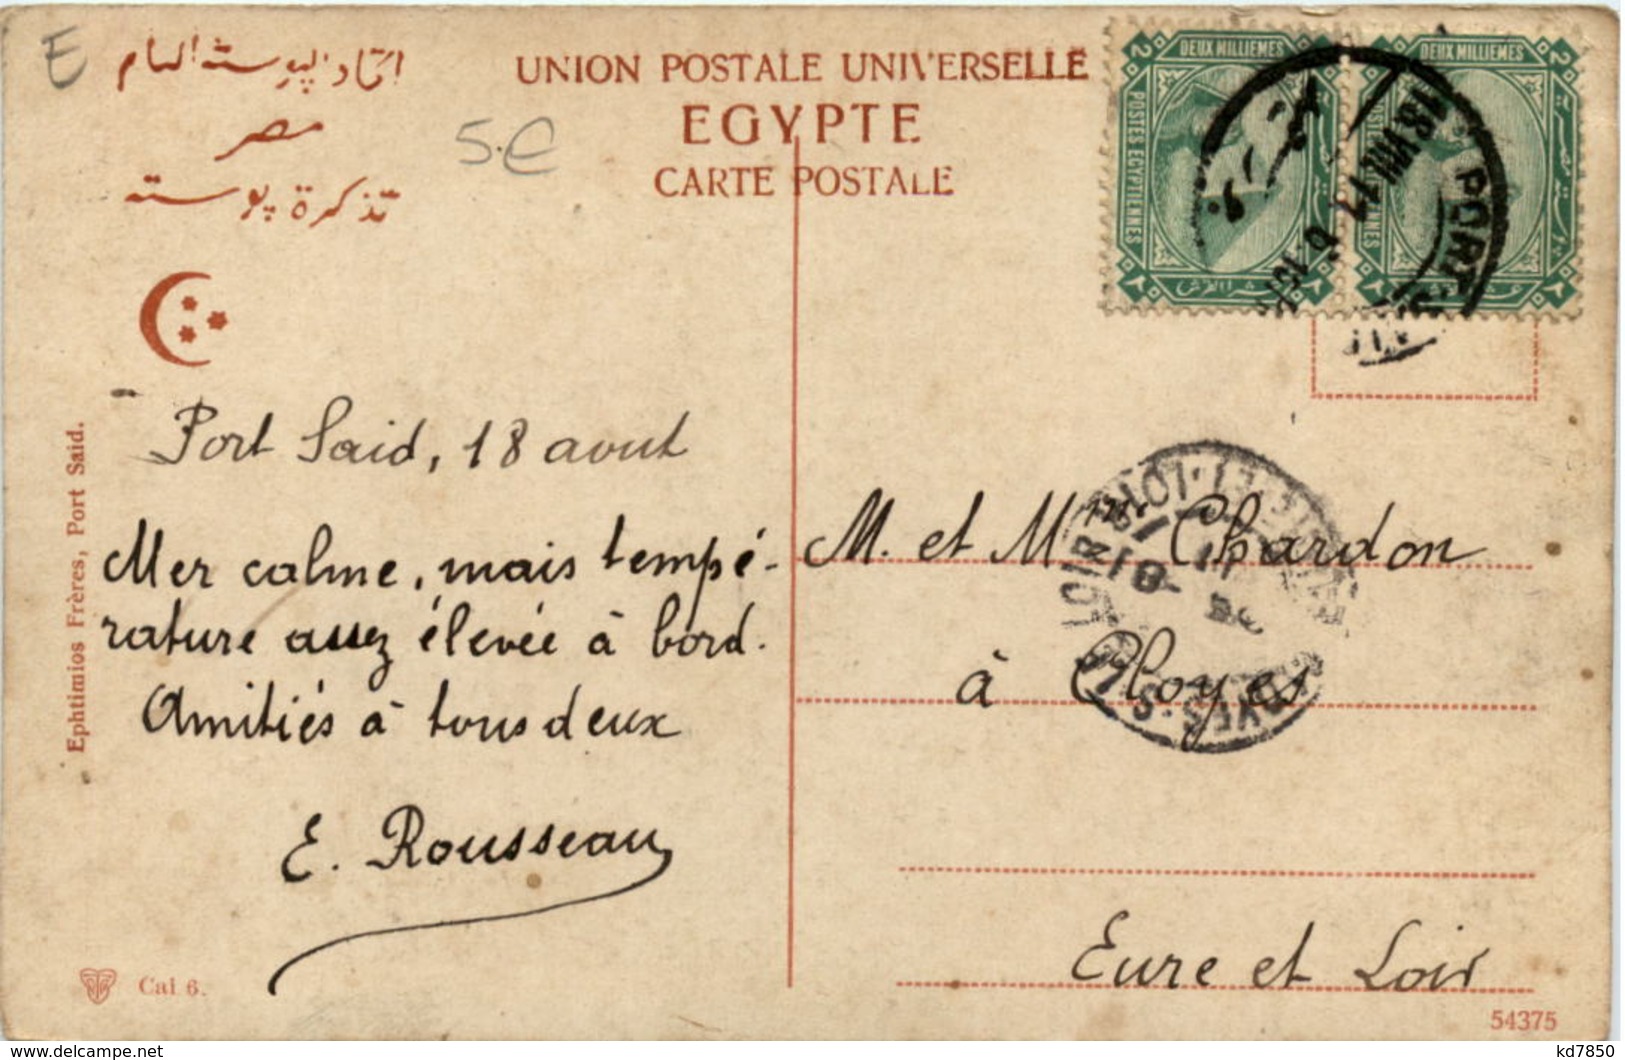 E
اتحاد البوسته العام
مصر
تذكرة بوسته
5.e
UNION POSTALE UNIVERSELLE
EGYPTE
CARTE POSTALE
DEUX MILLIEMES
2 2
POSTES EGYPTIENNES
DEUX MILLIEMES
2
18.VIII.1
PORT-S
Port Said, 18 aout
Mer calme, mais tempé-
rature assez élevée à bord.
Amitiés à tous deux
E. Rousseau
M. et Mme Chardon
à Cloyes
Eure et Loir
CLOYES-S-LE-LOIR
EURE-ET-LOIR
Ephtimios Frères, Port Said.
Cal 6.
54375
kd7850